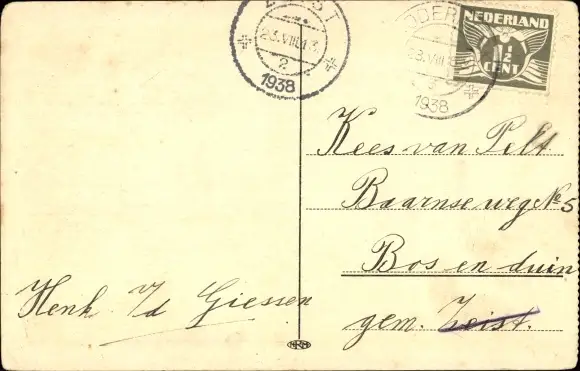 23.VIII.13
2
1938
1938
NEDERLAND
1½
CENT
Kees van Pelt
Baarnse weg No 5
Bos en duin
gem. Zeist.
Henk v/d Giessen